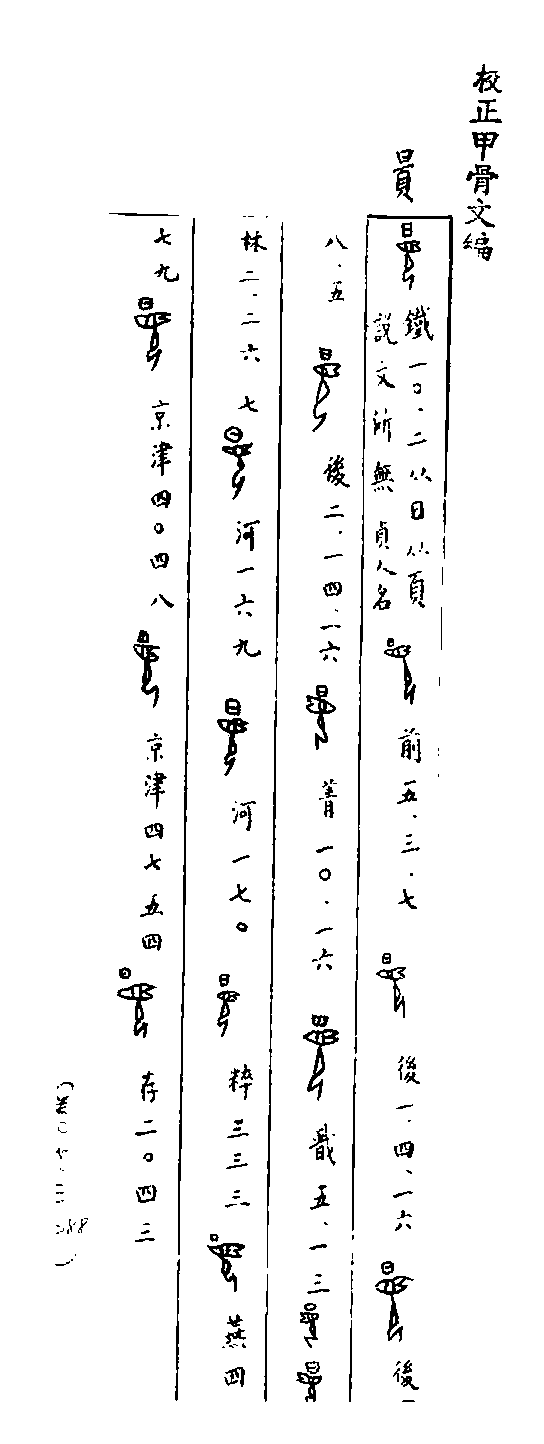 校正甲骨文編
㬎
鐵一〇.二从日从頁
說文所無貞人名
前五.三.七
後一.四.一六
後一
八.五
後二.一四.一六
菁一〇.一六
戩五.一三
林二.二六七
河一六九
河一七〇
粹三三三
燕四
七九
京津四〇四八
京津四七五四
存二〇四三